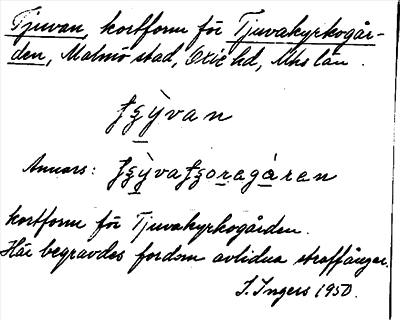 Tjuvan, kortform för Tjuvakyrkogår-
den, Malmö stad, Oxie hd, Mhs län.
ʈʂỳvan
Annars: ʈʂỳvaʈʂoragàran
kortform för Tjuvakyrkogården.
Här begravdes fordom avlidna straffångar.
I. Ingers 1950.